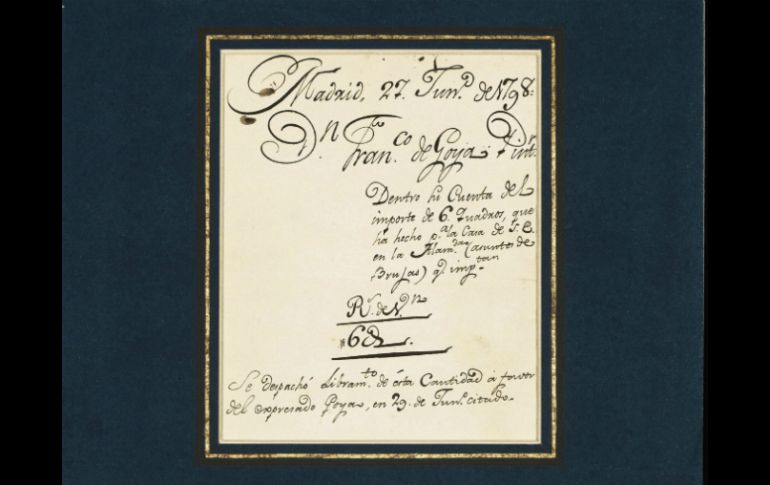 Madrid, 27. Jun.º de 1798.
Dn. Fran.co de Goya Pintr.
Dentro su Cuenta del
importe de 6. Quadros, que
ha hecho p.ª la Casa de S. E.
en la Alam.da (asuntos de
Brujas) q.e imptan
R.s de V.n
6
Se despachó Libram.to de ésta Cantidad á favor
del expresado Goya, en 29. de Jun.º citado.